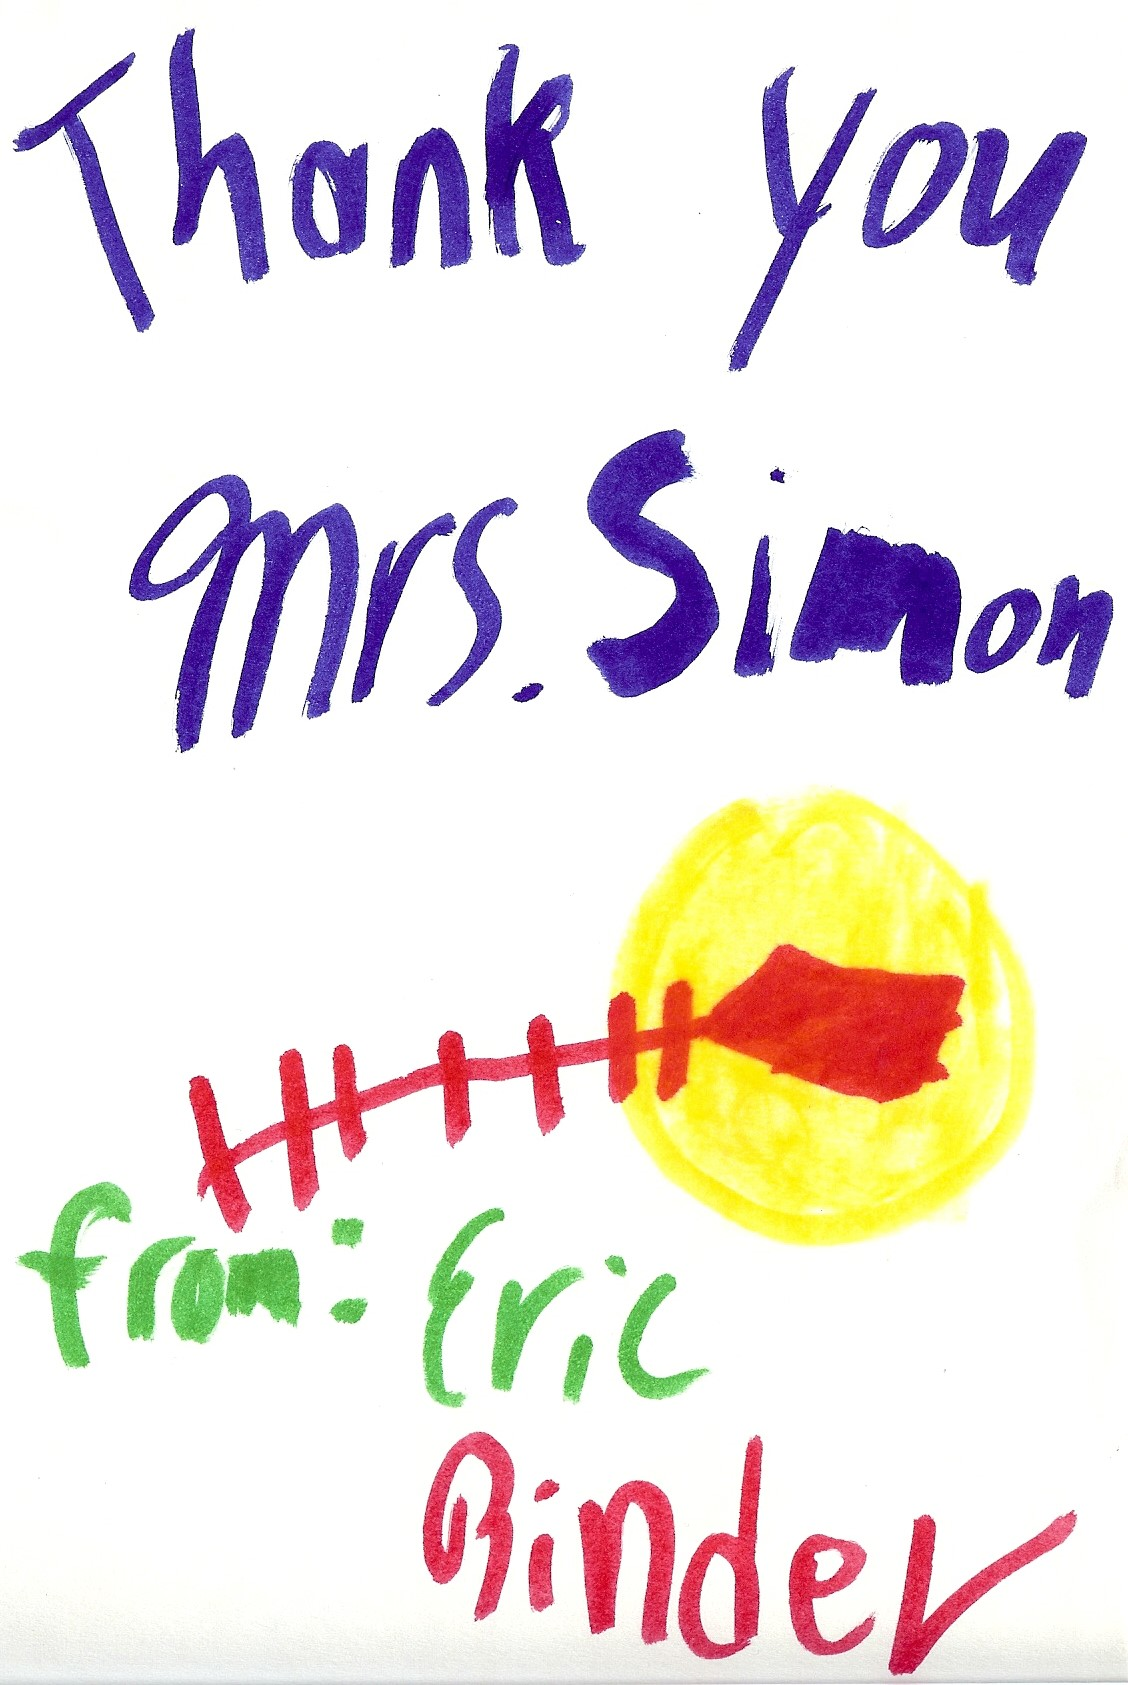 Thank you
Mrs. Simon
from: Eric
Binder